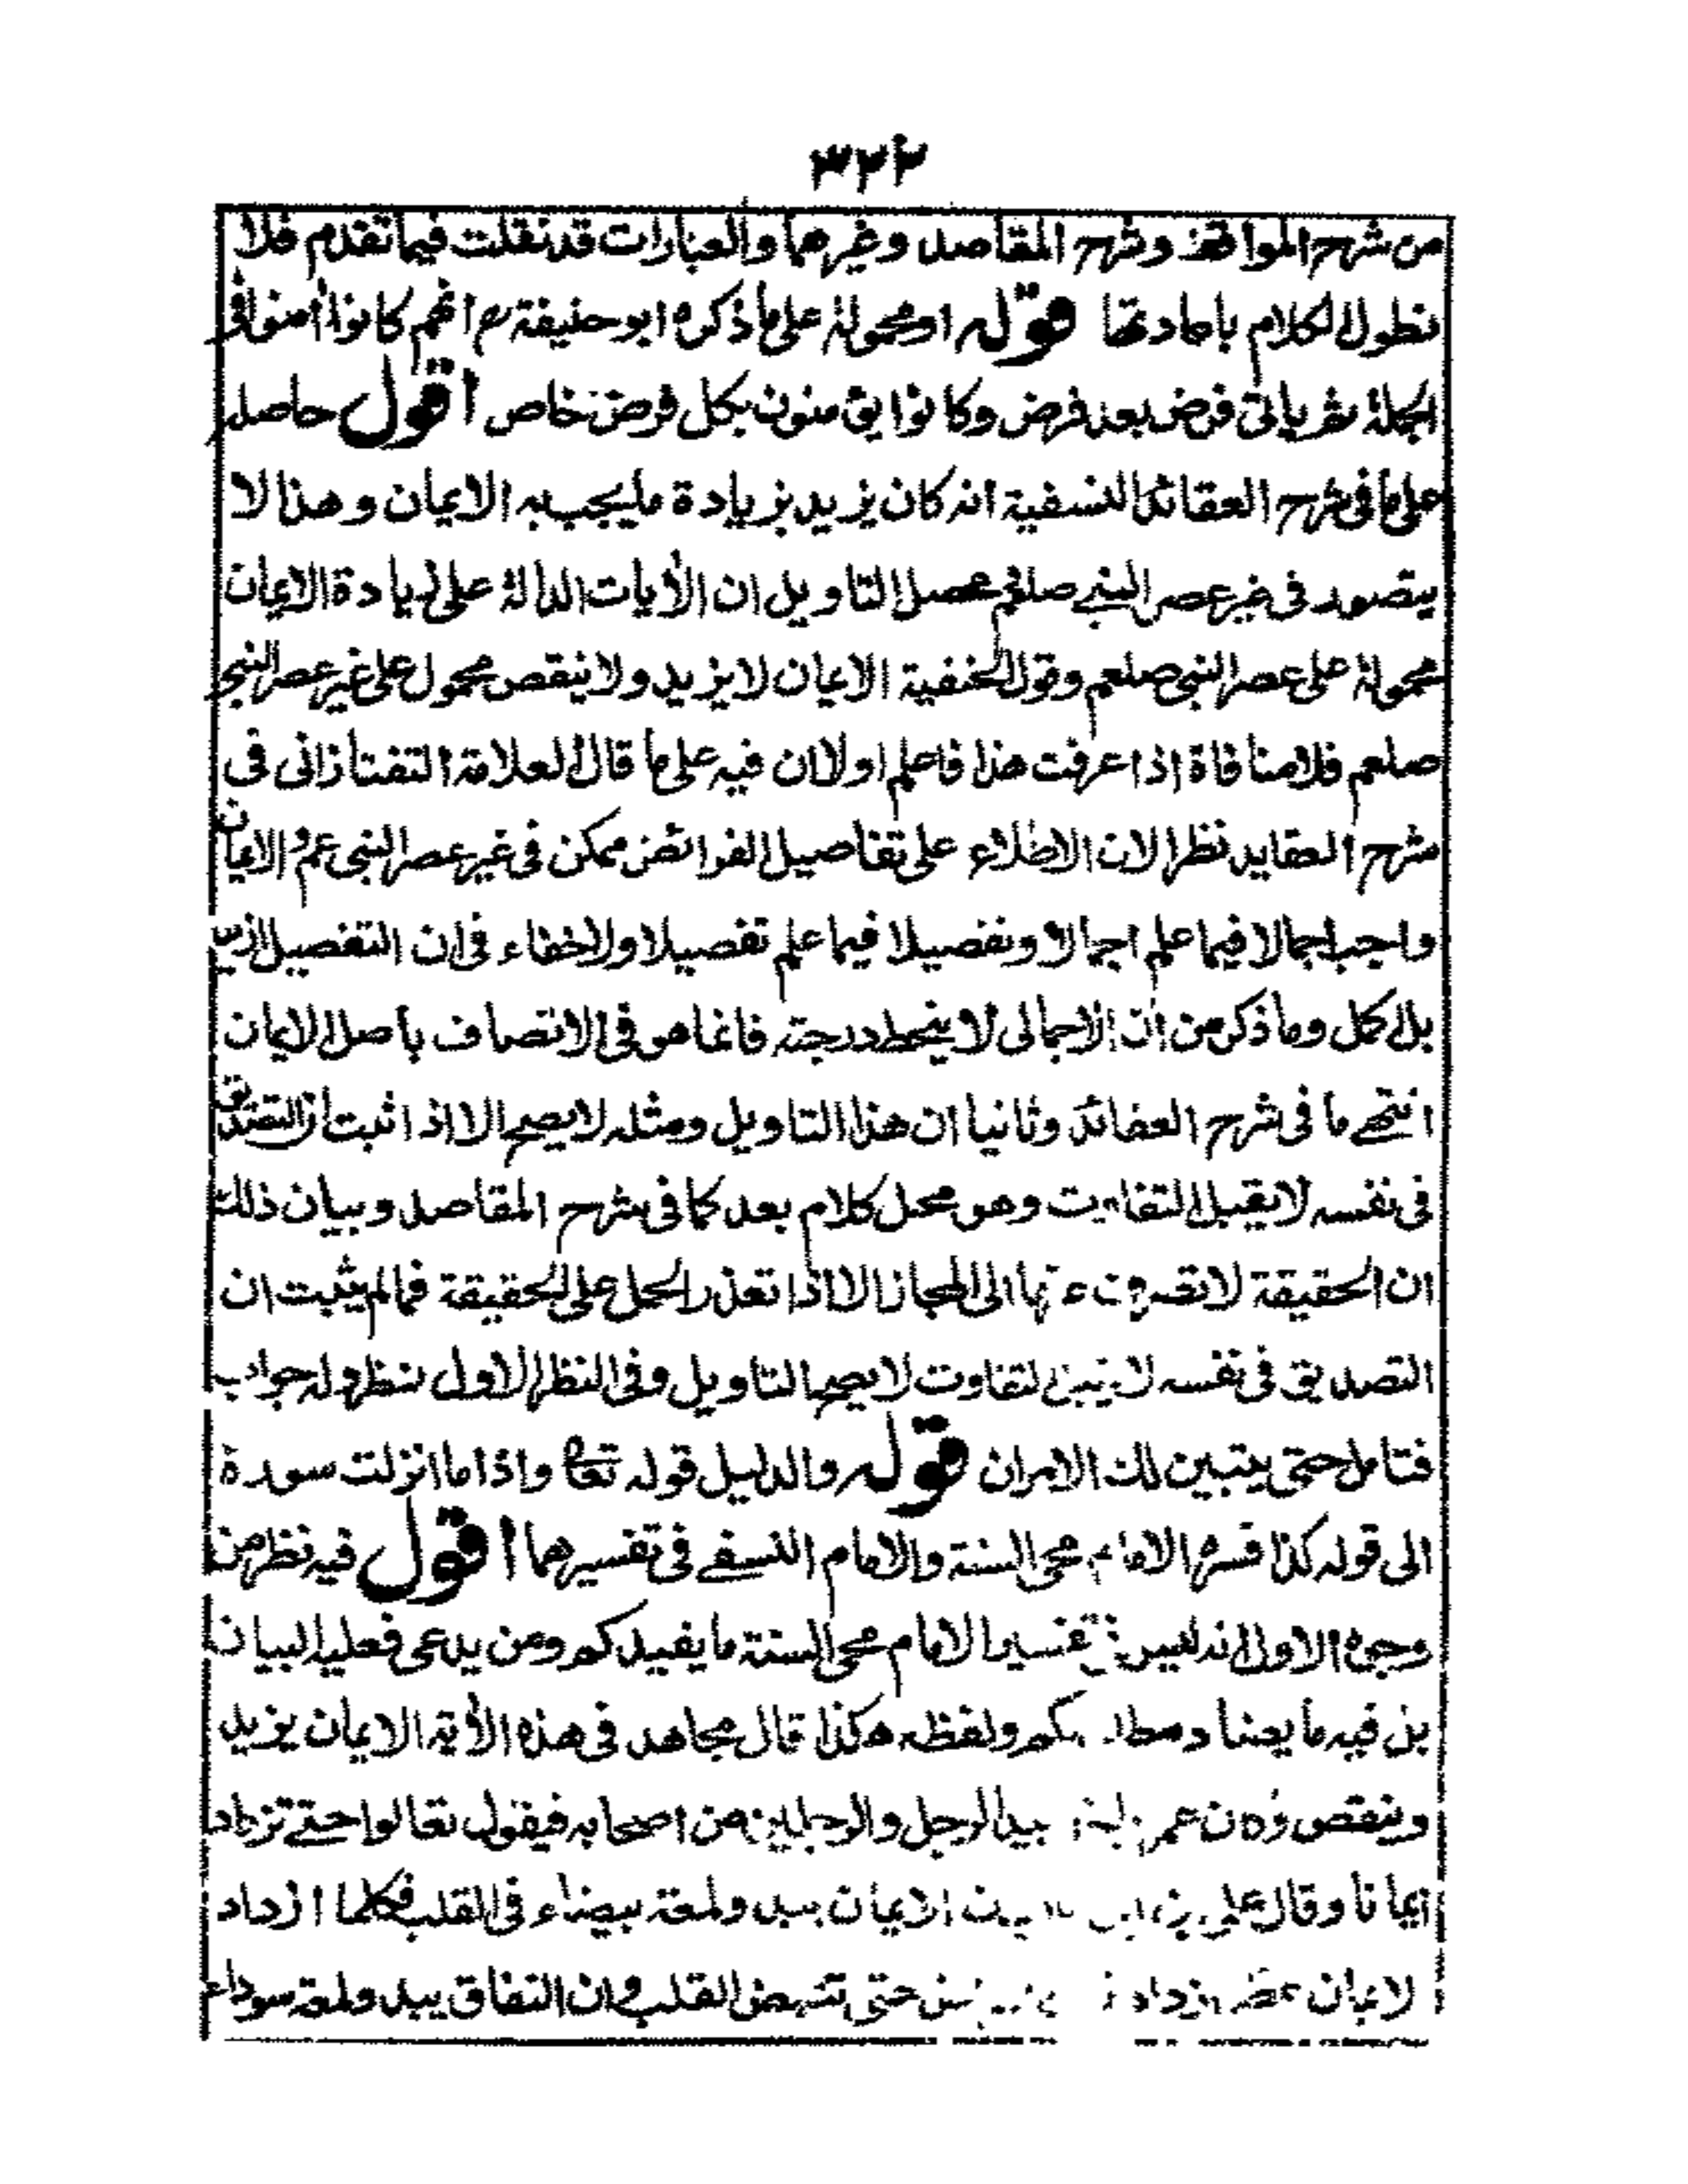 ٣٢٢
من شرح المواقف وشرح المقاصد وغيرهما والعبارات قد نقلت فيما تقدم فلا
نطول الكلام باعادتها قوله او محمولة على ما ذكره ابو حنيفة رح انهم كانوا أمنوا فى
الجملة ثم ياتى فرض بعد فرض وكانوا يؤمنون بكل فرض خاص اقول حاصله
على ما فى شرح العقائد النسفية انه كان يزيد بزيادة ما يجب به الايمان وهذا لا
يتصور فى غير عصر النبى صلعم محصل التاويل ان الأيات الدالة على زيادة الايمان
محمولة على عصر النبى صلعم وقول الحنفية الايمان لا يزيد ولا ينقص محمول على غير عصر النبى
صلعم فلا منافاة اذا عرفت هذا فاعلم اولا ان فيه على ما قال العلامة التفتازانى فى
شرح العقايد نظرا لان الاطلاع على تفاصيل الفرائض ممكن فى غير عصر النبى عم والايمان
واجب اجمالا فيما علم اجمالا وتفصيلا فيما علم تفصيلا ولا خفاء فى ان التفصيل ازيد
بل اكمل وما ذكر من ان الاجمالى لا ينحط درجته فانما هو فى الاتصاف باصل الايمان
انتهى ما فى شرح العقائد وثانيا ان هذا التاويل ومثله لا يصح الا اذا ثبت ان التصديق
فى نفسه لا يقبل التفاوت وهو محل كلام بعد كما فى شرح المقاصد وبيان ذلك
ان الحقيقة لا تصرف عنها الى المجاز الا اذا تعذر الحمل على الحقيقة فما لم يثبت ان
التصديق فى نفسه لا يقبل التفاوت لا يصح التاويل وفى النظر الاول نظر وله جواب
فتامل حتى يتبين لك الامران قوله والدليل قوله تعالى واذا ما انزلت سورة
الى قوله كذا فسره الامام محى السنة والامام النسفى فى تفسيرهما اقول فيه نظر من
وجوه الاول انه ليس فى تفسير الامام محى السنة ما يفيدكم ومن يدعى فعليه البيان
بل فيه ما يضاد مطلبكم ولفظه هكذا قال مجاهد فى هذه الأية الايمان يزيد
وينقص وكان عمر بيد الرجل والرجلين من اصحابه فيقول تعالوا حتى تزداد
ايمانا وقال على الايمان يبدو لمعة بيضاء فى القلب فكلما ازداد
الايمان حتى تبيض القلب وان النفاق يبدو لمعة سوداء